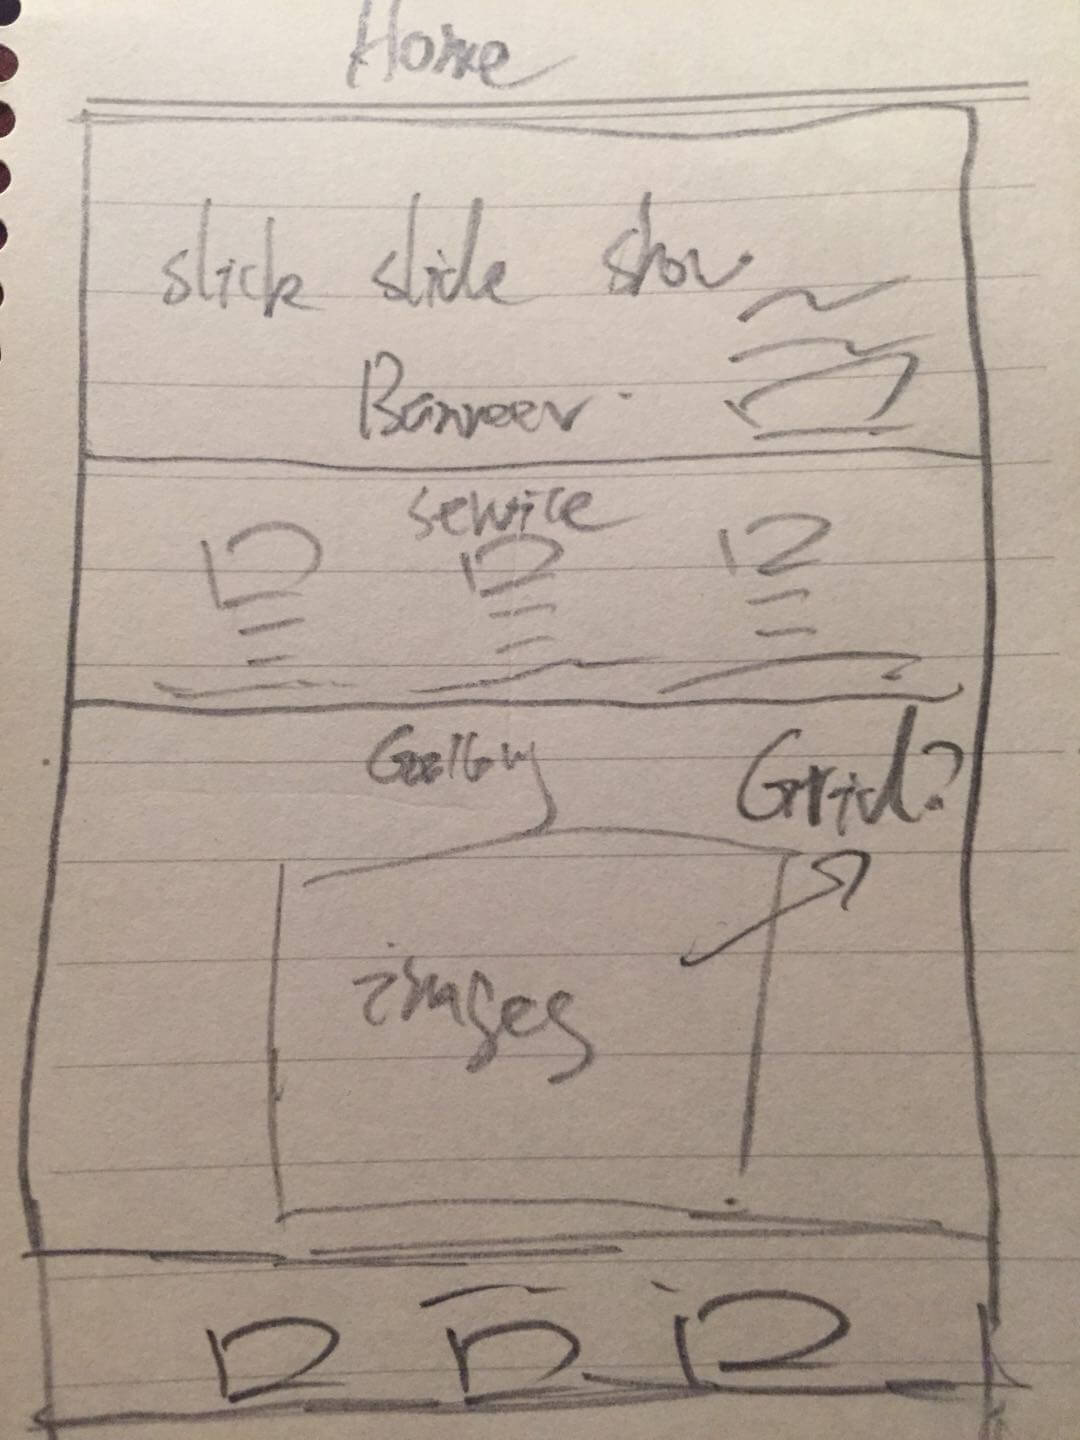 Home
slick slide show
Banner
service
Gallery
Grid?
images